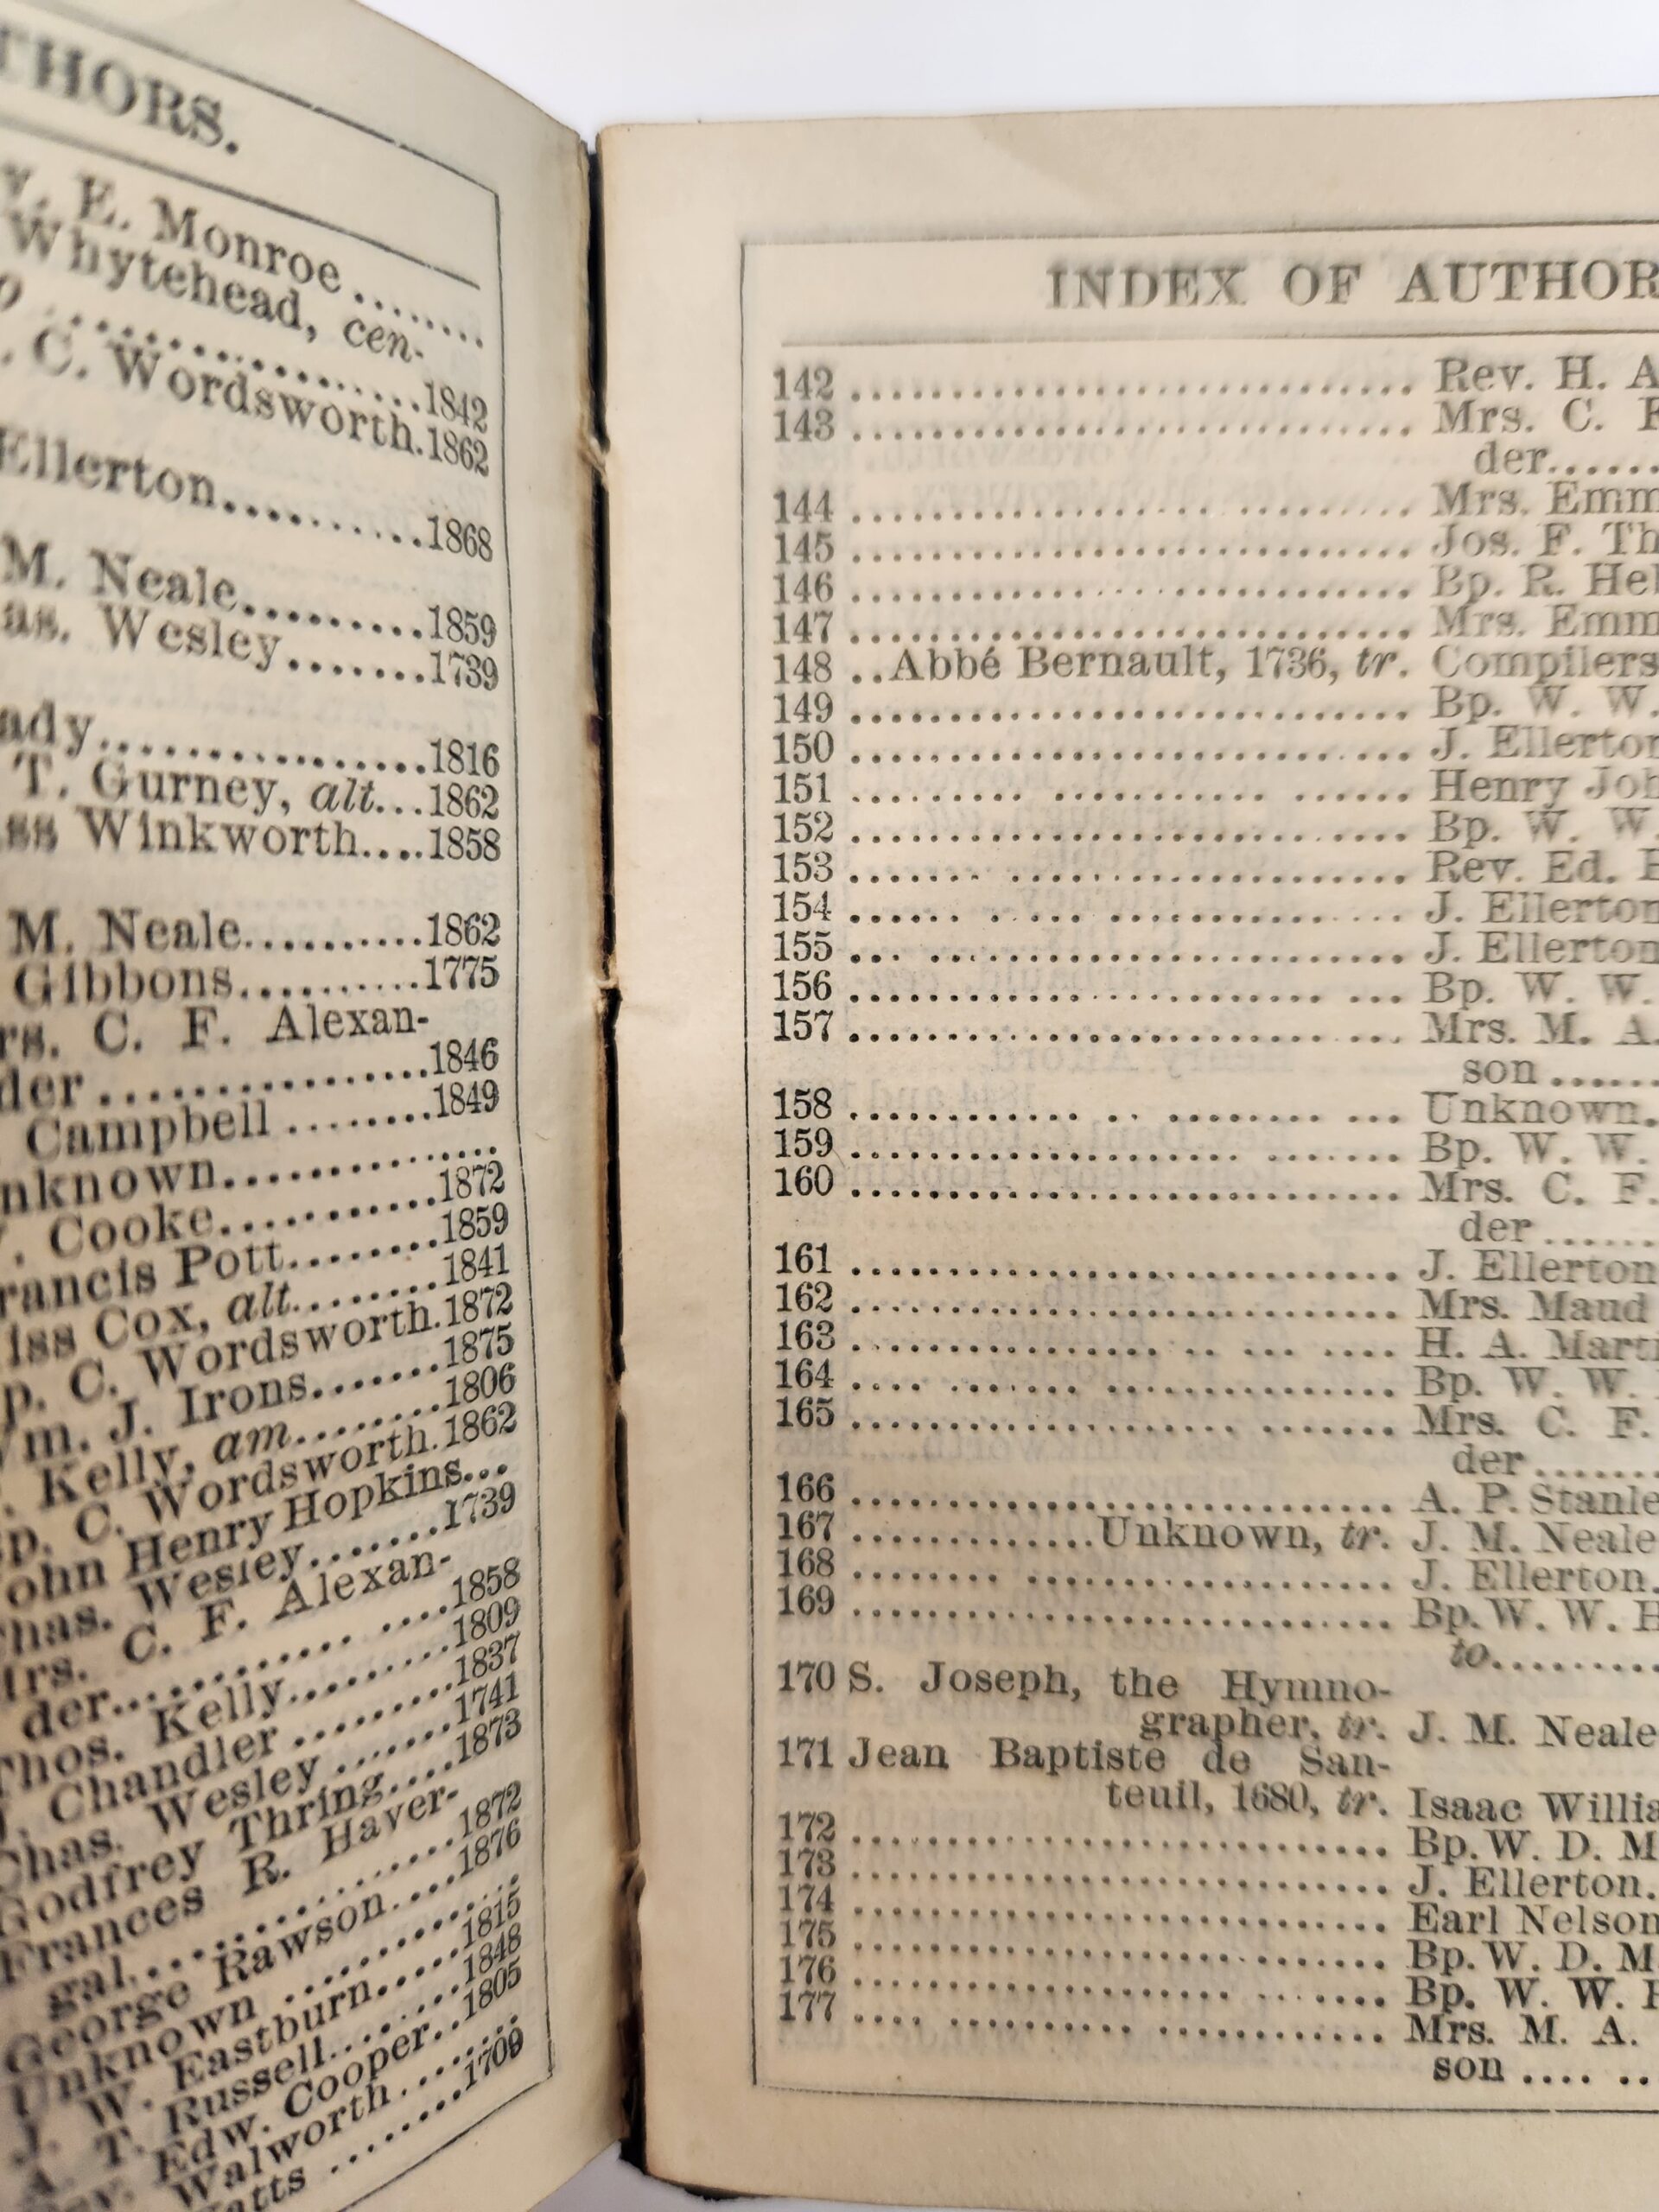 THORS.
v. E. Monroe ........
Whytehead, cen-
o ....................1842
. C. Wordsworth.1862
Ellerton...........1868
M. Neale..........1859
as. Wesley.......1739
ady................1816
T. Gurney, alt...1862
ss Winkworth....1858
M. Neale...........1862
Gibbons..........1775
rs. C. F. Alexan-
der.................1846
Campbell ........1849
nknown...............
. Cooke............1872
rancis Pott........1859
iss Cox, alt........1841
p. C. Wordsworth.1872
m. J. Irons.......1875
. Kelly, am........1806
p. C. Wordsworth.1862
ohn Henry Hopkins...
has. Wesley.......1739
rs. C. F. Alexan-
der..................1858
Thos. Kelly.........1809
J. Chandler .........1837
Chas. Wesley .......1741
Godfrey Thring....1873
Frances R. Haver-
gal...................1872
George Rawson....1876
Unknown ............
J. W. Eastburn.....1815
A. T. Russell.......1848
Edw. Cooper..1805
Walworth.......
atts .........1709
INDEX OF AUTHOR
142 .............................. Rev. H. A
143 .............................. Mrs. C. F
der......
144 .............................. Mrs. Emm
145 .............................. Jos. F. Th
146 .............................. Bp. R. Heb
147 .............................. Mrs. Emm
148 ..Abbé Bernault, 1736, tr. Compilers
149 .............................. Bp. W. W.
150 .............................. J. Ellerton
151 ......... ........... ...... Henry Joh
152 .............................. Bp. W. W.
153 ....... ..................... Rev. Ed. 
154 ...... ..... ............... J. Ellerton
155 ... ......................... J. Ellerton
156 ........................ ... Bp. W. W.
157 ........................ .... Mrs. M. A.
son ......
158 ............ .. ........ ... Unknown.
159 .................... ....... Bp. W. W.
160 ............................ Mrs. C. F.
der ......
161 ............................ J. Ellerton
162 ............................ Mrs. Maud
163 ................ .. ... .... H. A. Marti
164 .... ....... ............... Bp. W. W.
165 .................... ....... Mrs. C. F.
der ......
166 ............................ A. P. Stanle
167 .............Unknown, tr. J. M. Neale
168 ........ ................... J. Ellerton.
169 ............................ Bp. W. W. H
to.........
170 S. Joseph, the Hymno-
grapher, tr. J. M. Neale
171 Jean Baptiste de San-
teuil, 1680, tr. Isaac Willia
172 ............................ Bp. W. D. M
173 ............................ J. Ellerton.
174 ............................ Earl Nelson
175 ............................ Bp. W. D. M
176 .................... ....... Bp. W. W. H
177 .... .......... ............ Mrs. M. A.
son .... ..